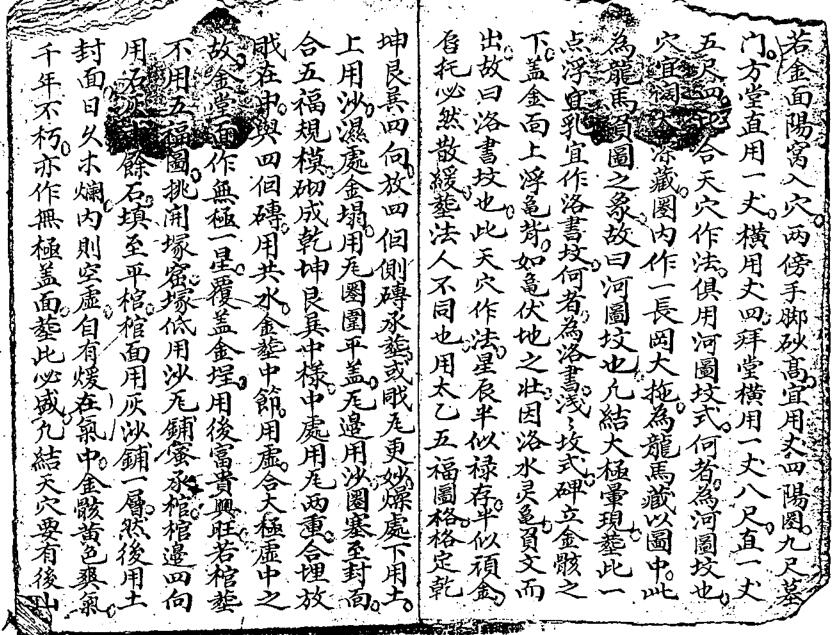 若金面陽窩入穴。两傍手脚砂髙。宜用丈四陽圏。九尺墓
门。方堂直用一丈。横用丈四。拜堂横用一丈八尺。直一丈
五尺四。合天穴作法。俱用河圖坟式。何者為河圖坟也。
穴宜深藏。圏内作一長岡大拖。為龍馬藏以圖中。此
為龍馬負圖之象。故曰河圖坟也。凢結大極暈現。塟此一
点浮宜乳。宜作洛書坟。何者為洛書。浅〻坟式。碑立金骸之
下。盖金面上浮龟背。如龟伏地之壮。因洛水灵龟負文而
出。故曰洛書坟也。此天穴作法。星辰半似禄存。半似頑金。
唇托必然散緩。塟法人不同也。用太乙五福圖格。格定乾
坤艮巽四向。放四個側磚承塟。或甎瓦更妙。燥處下用土。
上用沙。濕處金塌。用瓦圏圍平盖。瓦邉用沙圏塞至封面。
合五福規模。砌成乾坤艮巽中様。中處用瓦两重。合埋放
甎在中。與四個磚。用共水金塟中節。用虚合大極虚中之
故。金堂面作無極一星。覆盖金埕。用後富貴興旺。若棺塟
不用五福圖。挑開塚窟。塚低用沙瓦鋪蜜承棺。棺邉四向
用石灰餘石。填至平棺。棺面用灰沙鋪一層。然後用土
封面。日久木爛。内則空虚。自有煖在氣中。金骸黄色爽氣
千年不朽。亦作無極盖面。塟此必盛。凢結天穴要有後山